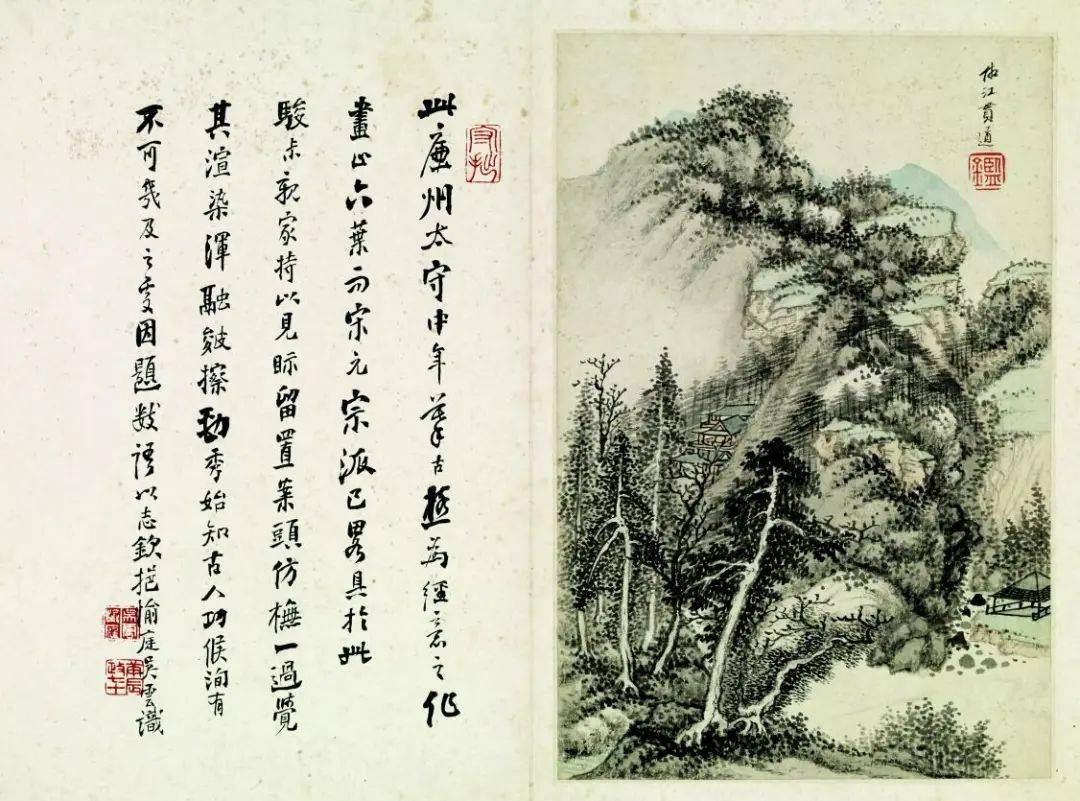 倣江貫道
鑑
守拙
此廉州太守中年摹古極為經意之作
畫止六葉而宋元宗派已畧具於此
駿尗親家持以見眎留置案頭仿橅一過覺
其渲染渾融皴擦勁秀始知古人功候洵有
不可幾及之處因題數語以志欽挹愉庭吳雲識